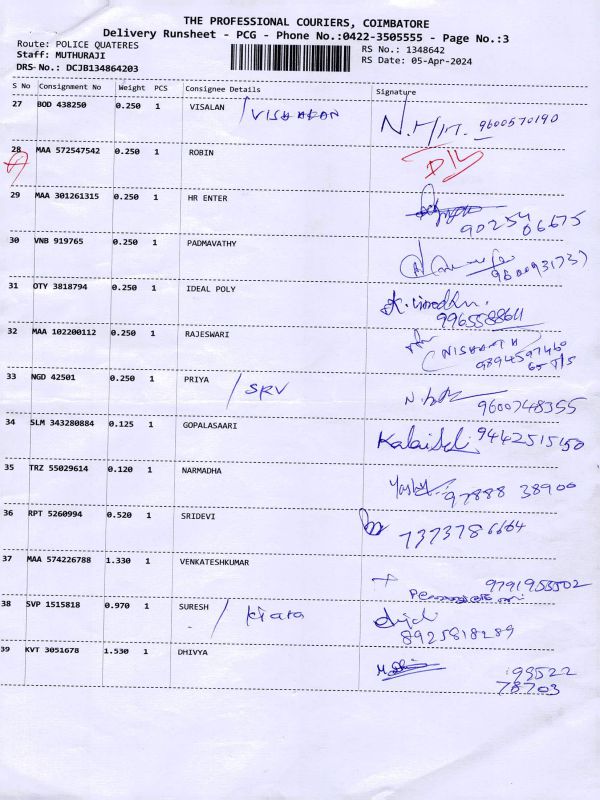 THE PROFESSIONAL COURIERS, COIMBATORE
Delivery Runsheet - PCG - Phone No.:0422-3505555 - Page No.:3
Route: POLICE QUATERES
RS No.: 1348642
Staff: MUTHURAJI
RS Date: 05-Apr-2024
DRS No.: DCJB134864203
S No Consignment No Weight PCS Consignee Details Signature
27 BOD 438250 0.250 1 VISALAN / VISHAKAN 9600570190
28 MAA 572547542 0.250 1 ROBIN
29 MAA 301261315 0.250 1 HR ENTER
90254
06675
30 VNB 919765 0.250 1 PADMAVATHY
31 OTY 3818794 0.250 1 IDEAL POLY
9965588641
32 MAA 102200112 0.250 1 RAJESWARI
NISHANTH
9894597460
33 NGD 42501 0.250 1 PRIYA / SRV
9600748355
34 SLM 343280884 0.125 1 GOPALASAARI
9442515150
35 TRZ 55029614 0.120 1 NARMADHA
97888 38900
36 RPT 5260994 0.520 1 SRIDEVI
7373786664
37 MAA 574226788 1.330 1 VENKATESHKUMAR
9791953502
38 SVP 1515818 0.970 1 SURESH / kiara
8925818289
39 KVT 3051678 1.530 1 DHIVYA
99522
78703